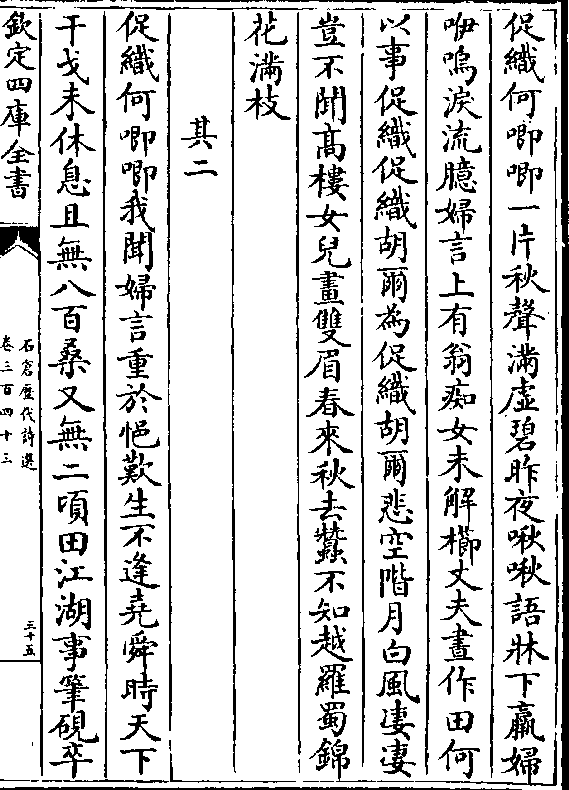 促織何唧唧一片秋聲滿虛碧昨夜啾啾語牀下羸婦
咿嗚淚流臆婦言上有翁痴女未解櫛丈夫晝作田何
以事促織促織胡爾為促織胡爾悲空階月白風凄凄
豈不聞髙樓女兒畫雙眉春來秋去蠶不知越羅蜀錦
花滿枝
其二
促織何唧唧我聞婦言重於悒歎生不逢堯舜時天下
干戈未休息且無八百桑又無二頃田江湖事筆硯卒
欽定四庫全書
石倉歴代詩選
卷三百四十三
三十五